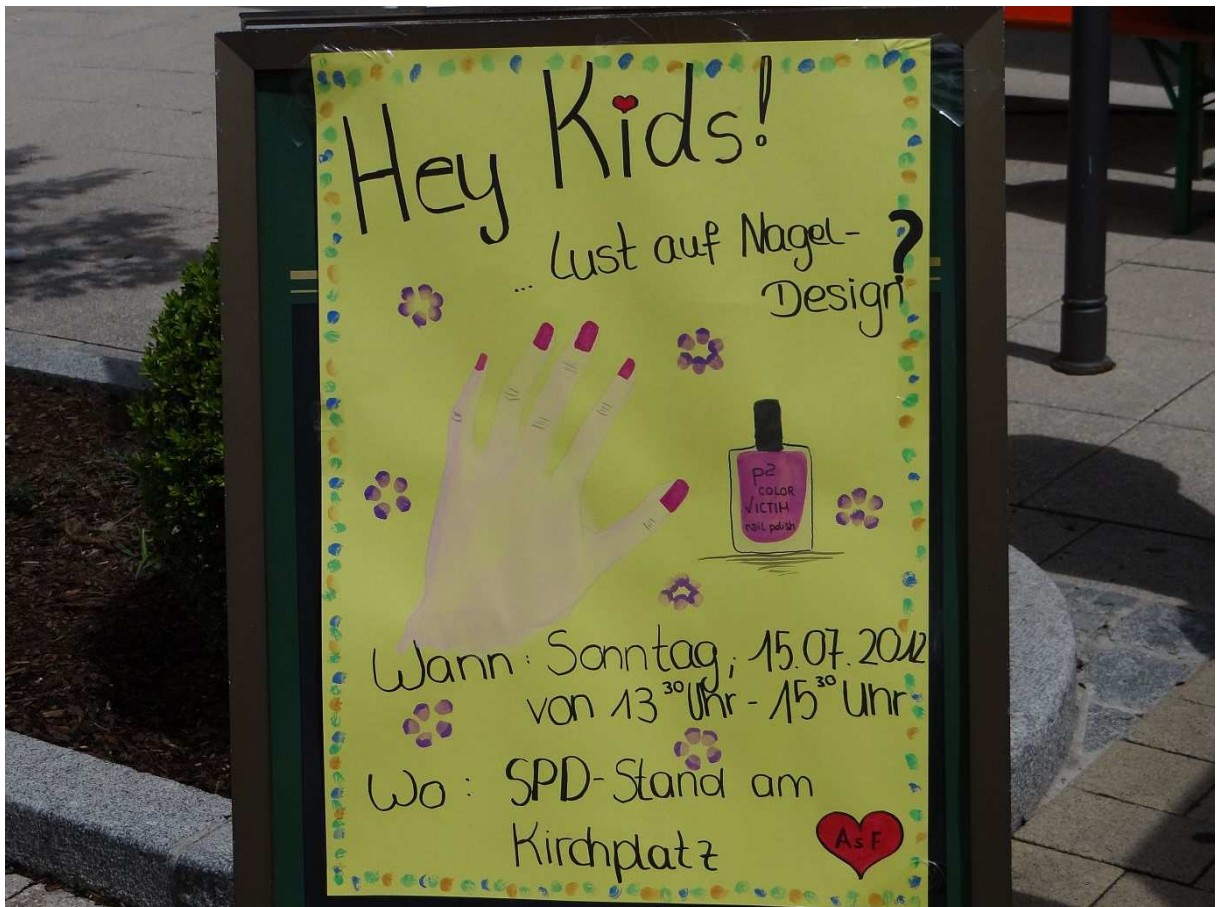 Hey Kids!
... Lust auf Nagel-
Design?
p2
COLOR
VICTIM
nail polish
Wann: Sonntag, 15.07.2012
von 13 30 Uhr - 15 30 Uhr
Wo: SPD-Stand am
Kirchplatz
AsF